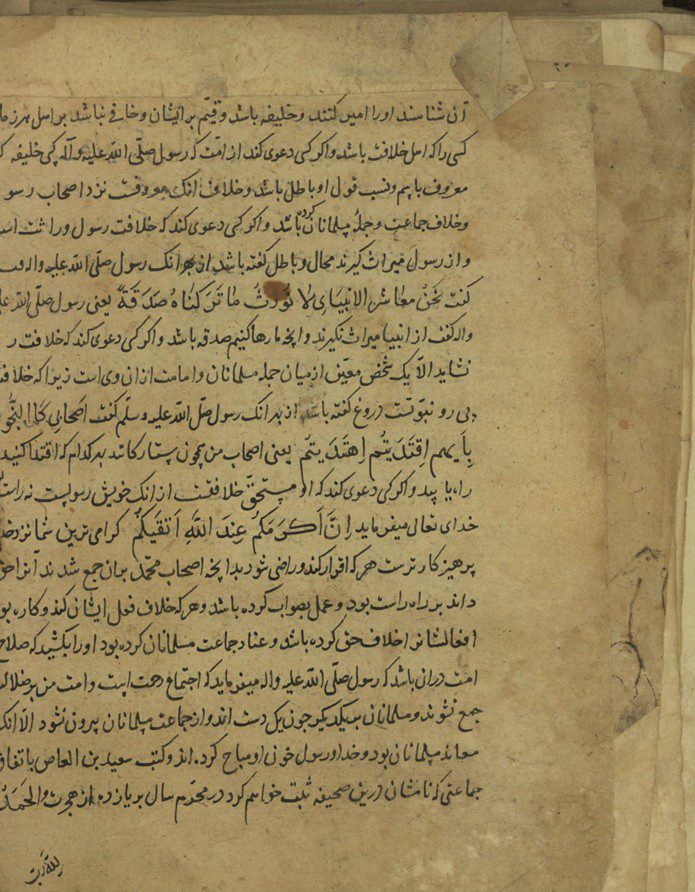 آن شناسند اورا امیر کنند و خلیفه باشد و قیّم بر ایشان و خافی نباشد بر اهل هر زما
کسی را که اهل خلافت باشد و اگر کسی دعوی کند از امّت که رسول صلّی الله علیه و آله کسی خلیفه ک
معروف باسم و نسب قول او باطل باشد و خلاف انک معروفت نزد اصحاب رسو
و خلاف جماعت و جملهٔ مسلمانان کرده باشد و اگر کسی دعوی کند که خلافت رسول وراثت است
و از رسول میراث گیرند محال و باطل گفته باشد از بهر انک رسول صلّی الله علیه واله
گفت نَحنُ مَعاشِر الانبیاءِ لا نُورَثُ مٰا تَرَکناهُ صَدَقَةٌ یعنی رسول صلّی الله علی
واله گفت از انبیا میراث نگیرند و انچه ما رها کنیم صدقه باشد و اگر کسی دعوی کند که خلافت ر
نشاید الّا یک شخص معیّن از میان جمله مسلمانان و امامت از ان وی است زیرا که خلاف
پی رو نبوّتست دروغ گفته باشد از بهر انک رسول صلّی الله علیه و سلّم گفت اَصحابی کَالنُّجو
بِاَیِّهِم اِقتَدَیتُم اِهتَدَیتُم یعنی اصحاب من همچون ستارگانند بهر کدام که اقتدا کنید
راه یابید و اگر کسی دعوی کند که او مستحقّ خلافتست از انک خویش رسولست نه راست
خدای تعالی میفرماید اِنَّ اَکرَمَکُم عِندَ اللّٰهِ اَتقیٰکُم گرامی‌ترین شما نزد خد
پرهیزکارترست هر که اقرار کند و راضی شود بدانچه اصحاب محمّد بران جمع شدند آنرا حق
داند بر راه راست بود و عمل بصواب کرده باشد و هر که خلاف فعل ایشان کند و کاره بو
افعالشانرا خلاف حق کرده باشد و عناد جماعت مسلمانان کرده بود او را بکشید که صلاح
امت دران باشد که رسول صلّی الله علیه واله میفرماید که اجتماع رحمت است و امت من بر ضلالت
جمع نشوند و مسلمانان بیکدیگر چون یک دست اند و از جماعت مسلمانان بیرون نشود الّا انک
معاند مسلمانان بود و خدا و رسول خون او مباح کرده‌اند و کتب سعید بن العاص باتفاق
جماعتی که نامشان درین صحیفه ثبت خواهم کرد در محرّم سال بر یازده از هجرت والحمد